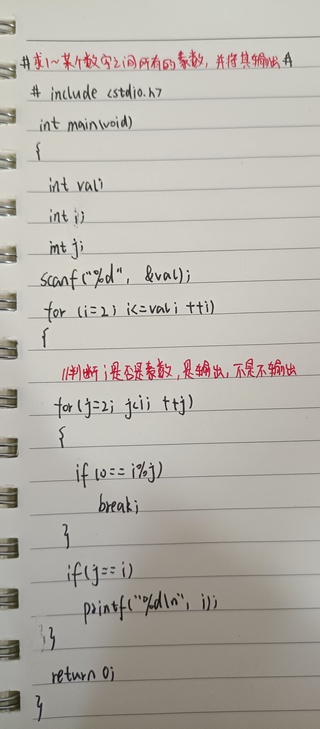 #求1~某个数字之间所有的素数，并将其输出#
# include <stdio.h>
int main(void)
{
int val;
int i;
int j;
scanf("%d", &val);
for (i=2; i<=val; ++i)
{
//判断i是否是素数，是输出，不是不输出
for(j=2; j<i; ++j)
{
if (0== i%j)
break;
}
if(j== i)
printf("%d\n", i);
}
return 0;
}